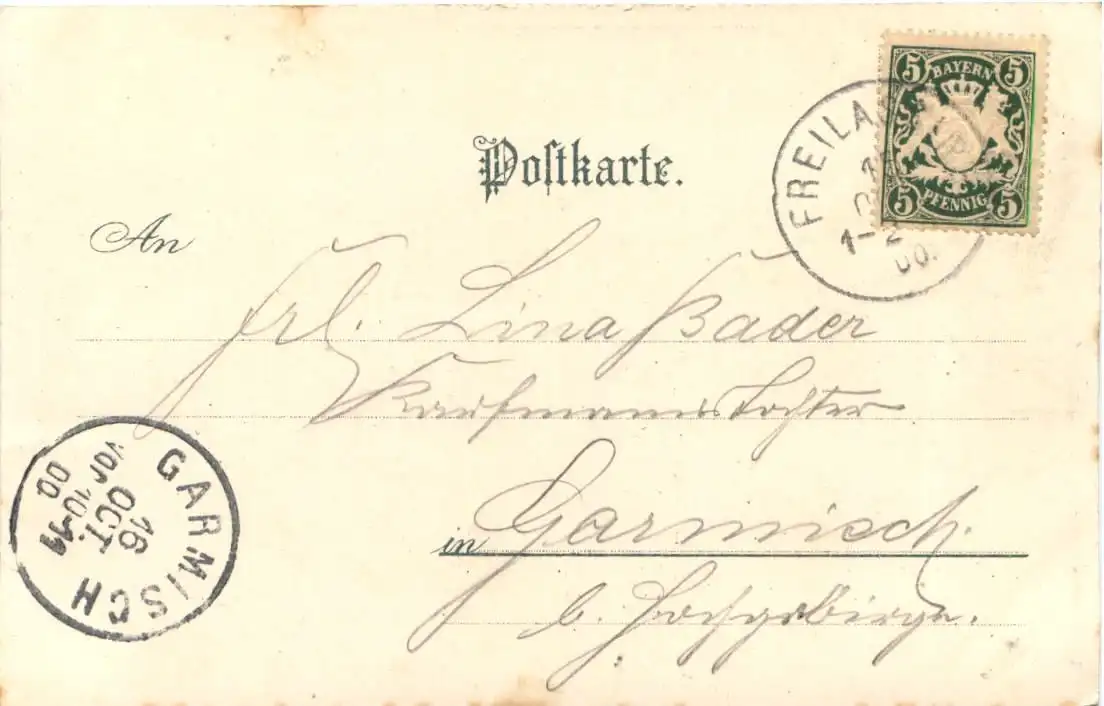 5 BAYERN 5
5 PFENNIG 5
FREILA
1-2
00.
Postkarte.
An
Frl. Lina Bader
Kaufmannstochter
in Garmisch.
b. Hochgebirge.
GARMISCH
16
OCT.
VOR 10-11
00